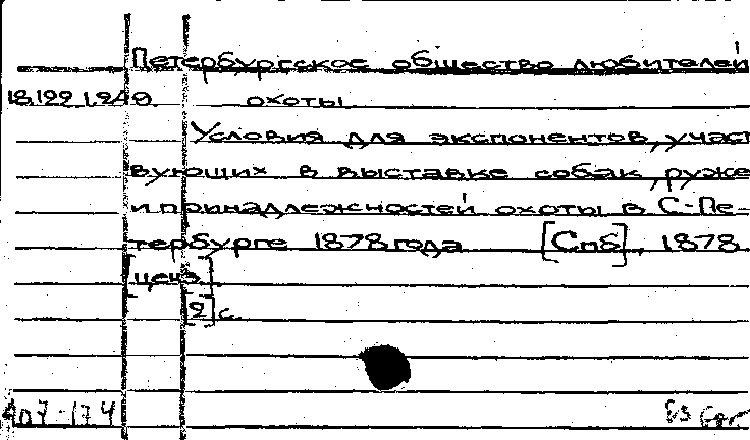 Петербургское общество любителей
18.122.1.240 охоты
Условия для экспонентов, участ
вующих в выставке собак, руже
и принадлежностей охоты в С-Пе-
тербурге 1878 года [Спб], 1878
[ценз]
[2] с.